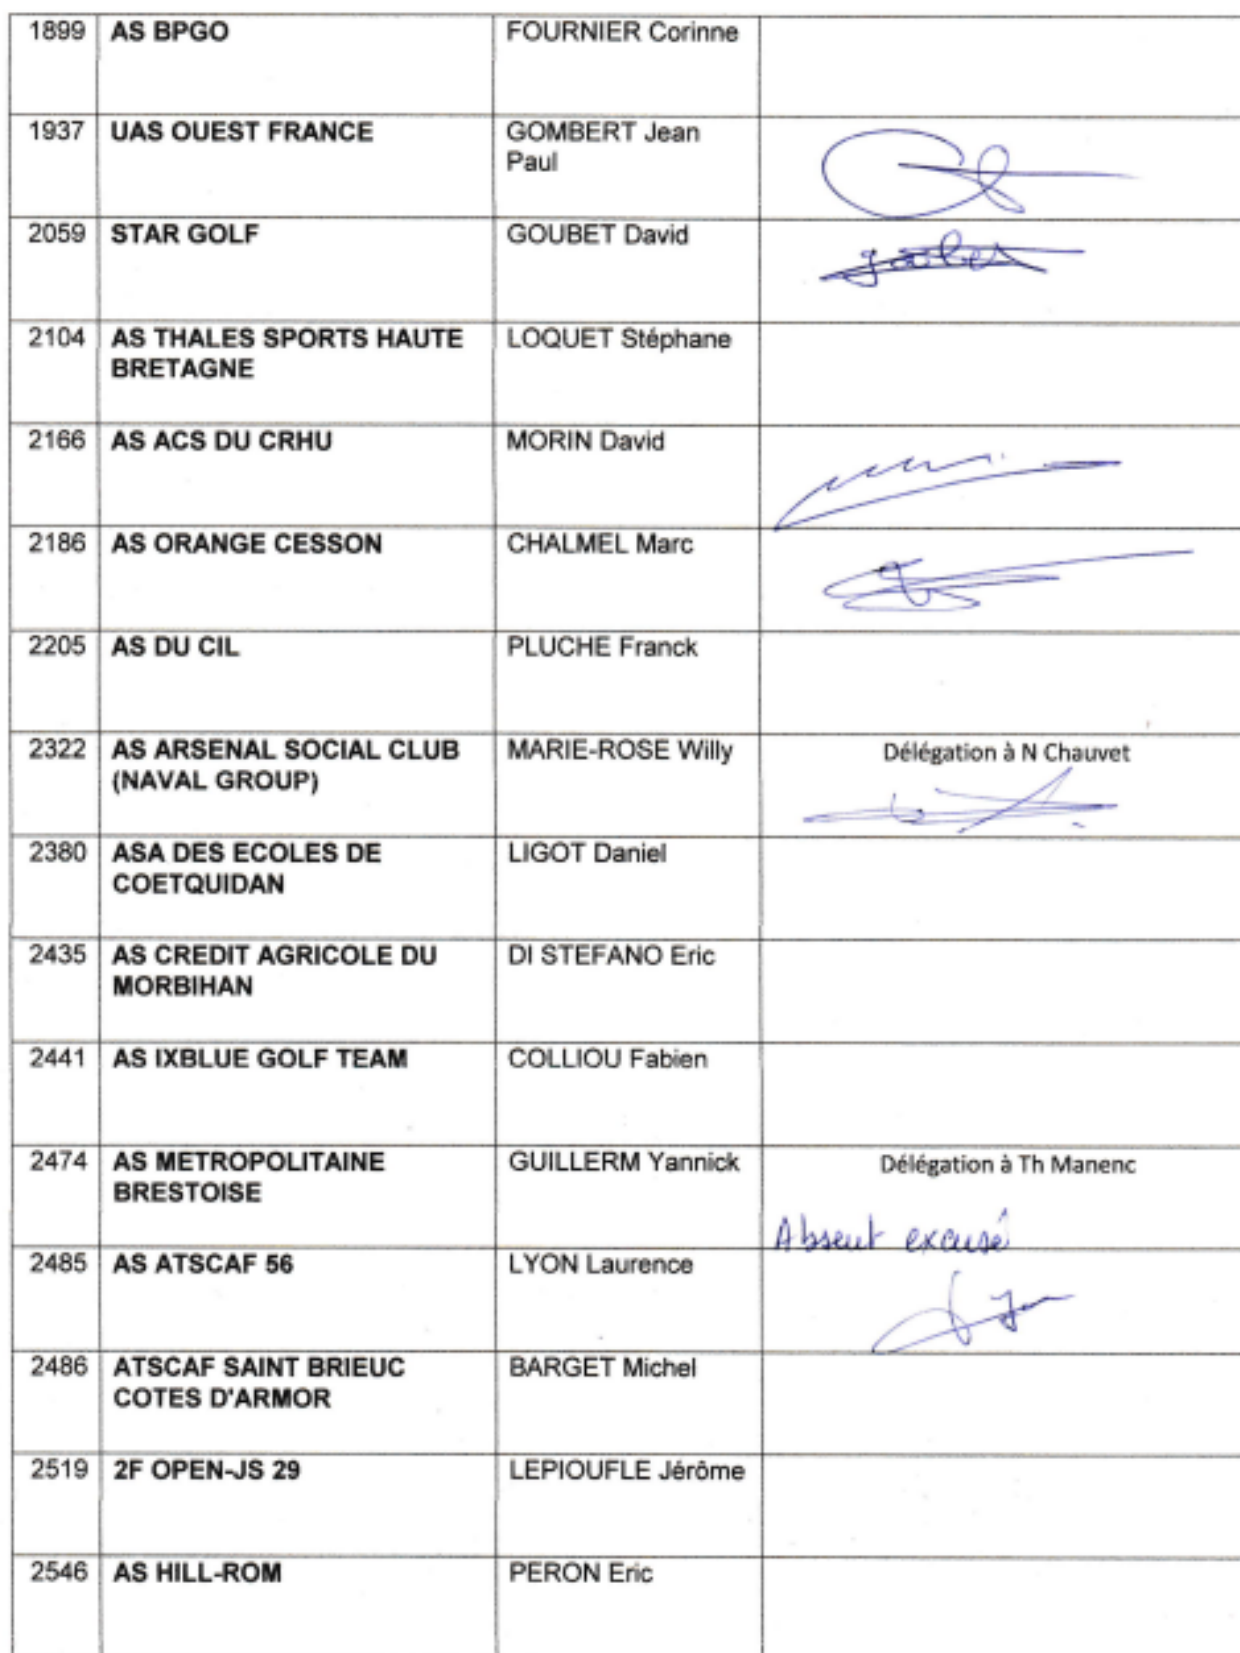 1899 AS BPGO FOURNIER Corinne
1937 UAS OUEST FRANCE GOMBERT Jean
Paul
2059 STAR GOLF GOUBET David goubet
2104 AS THALES SPORTS HAUTE LOQUET Stéphane
BRETAGNE
2166 AS ACS DU CRHU MORIN David
2186 AS ORANGE CESSON CHALMEL Marc
2205 AS DU CIL PLUCHE Franck
2322 AS ARSENAL SOCIAL CLUB MARIE-ROSE Willy Délégation à N Chauvet
(NAVAL GROUP)
2380 ASA DES ECOLES DE LIGOT Daniel
COETQUIDAN
2435 AS CREDIT AGRICOLE DU DI STEFANO Eric
MORBIHAN
2441 AS IXBLUE GOLF TEAM COLLIOU Fabien
2474 AS METROPOLITAINE GUILLERM Yannick Délégation à Th Manenc
BRESTOISE
Absent excusé
2485 AS ATSCAF 56 LYON Laurence
2486 ATSCAF SAINT BRIEUC BARGET Michel
COTES D'ARMOR
2519 2F OPEN-JS 29 LEPIOUFLE Jérôme
2546 AS HILL-ROM PERON Eric